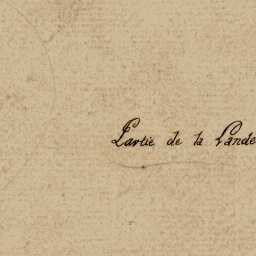 Partie de la Lande